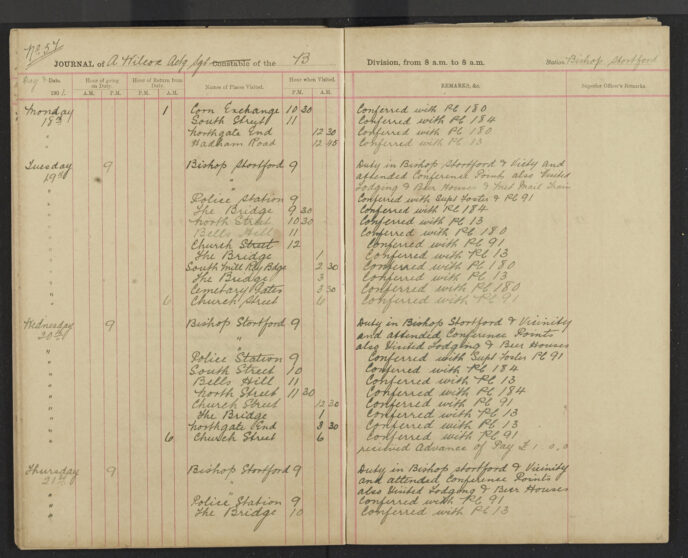 No. 57
JOURNAL of A Wilcox Actg Sgt Constable of the "B" Division, from 8 a.m. to 8 a.m. Station Bishop Stortford
Day & Date. 1901. Hour of going on Duty. A.M. P.M. Hour of Return from Duty. A.M. P.M. Names of Places Visited. Hour when Visited. P.M. A.M. REMARKS, &c. Superior Officer's Remarks.
Monday 1 Corn Exchange 10 30 Conferred with PC 180
18th South Street 11 Conferred with PC 184
" Northgate End 12 30 Conferred with PC 180
Hadham Road 12 45 Conferred with PC 13
Tuesday 9 Bishop Stortford 9 Duty in Bishop Stortford & Vicity and
19th " attended Conference Points also Visited
" Lodging & Beer Houses & met Mail Train
" Police Station 9 Conferred with Supt Foster & PC 91
" The Bridge 9 30 Conferred with PC 184
" North Street 10 30 Conferred with PC 13
" Bells Hill 11 Conferred with PC 180
" Church Street 12 Conferred with PC 91
" The Bridge 1 Conferred with PC 13
" South Mill Rly Bdge 2 30 Conferred with PC 180
" The Bridge 3 Conferred with PC 13
" Cemetary Gates 3 30 Conferred with PC 180
" 6 Church Street 6 Conferred with PC 91
Wednesday 9 Bishop Stortford 9 Duty in Bishop Stortford & Vicinity
20th " and attended Conference Points
" " also Visited Lodging & Beer Houses
" Police Station 9 Conferred with Supt Foster PC 91
" South Street 10 Conferred with PC 184
" Bells Hill 11 Conferred with PC 13
" North Street 11 30 Conferred with PC 184
" Church Street 12 30 Conferred with PC 91
" The Bridge 1 Conferred with PC 13
" Northgate End 3 30 Conferred with PC 13
" 6 Church Street 6 Conferred with PC 91
" received Advance of Pay £1. 0. 0
Thursday 9 Bishop Stortford 9 Duty in Bishop Stortford & Vicinity
21st and attended Conference Points
" " also Visited Lodging & Beer Houses
" Police Station 9 Conferred with PC 91
" The Bridge 10 Conferred with PC 13